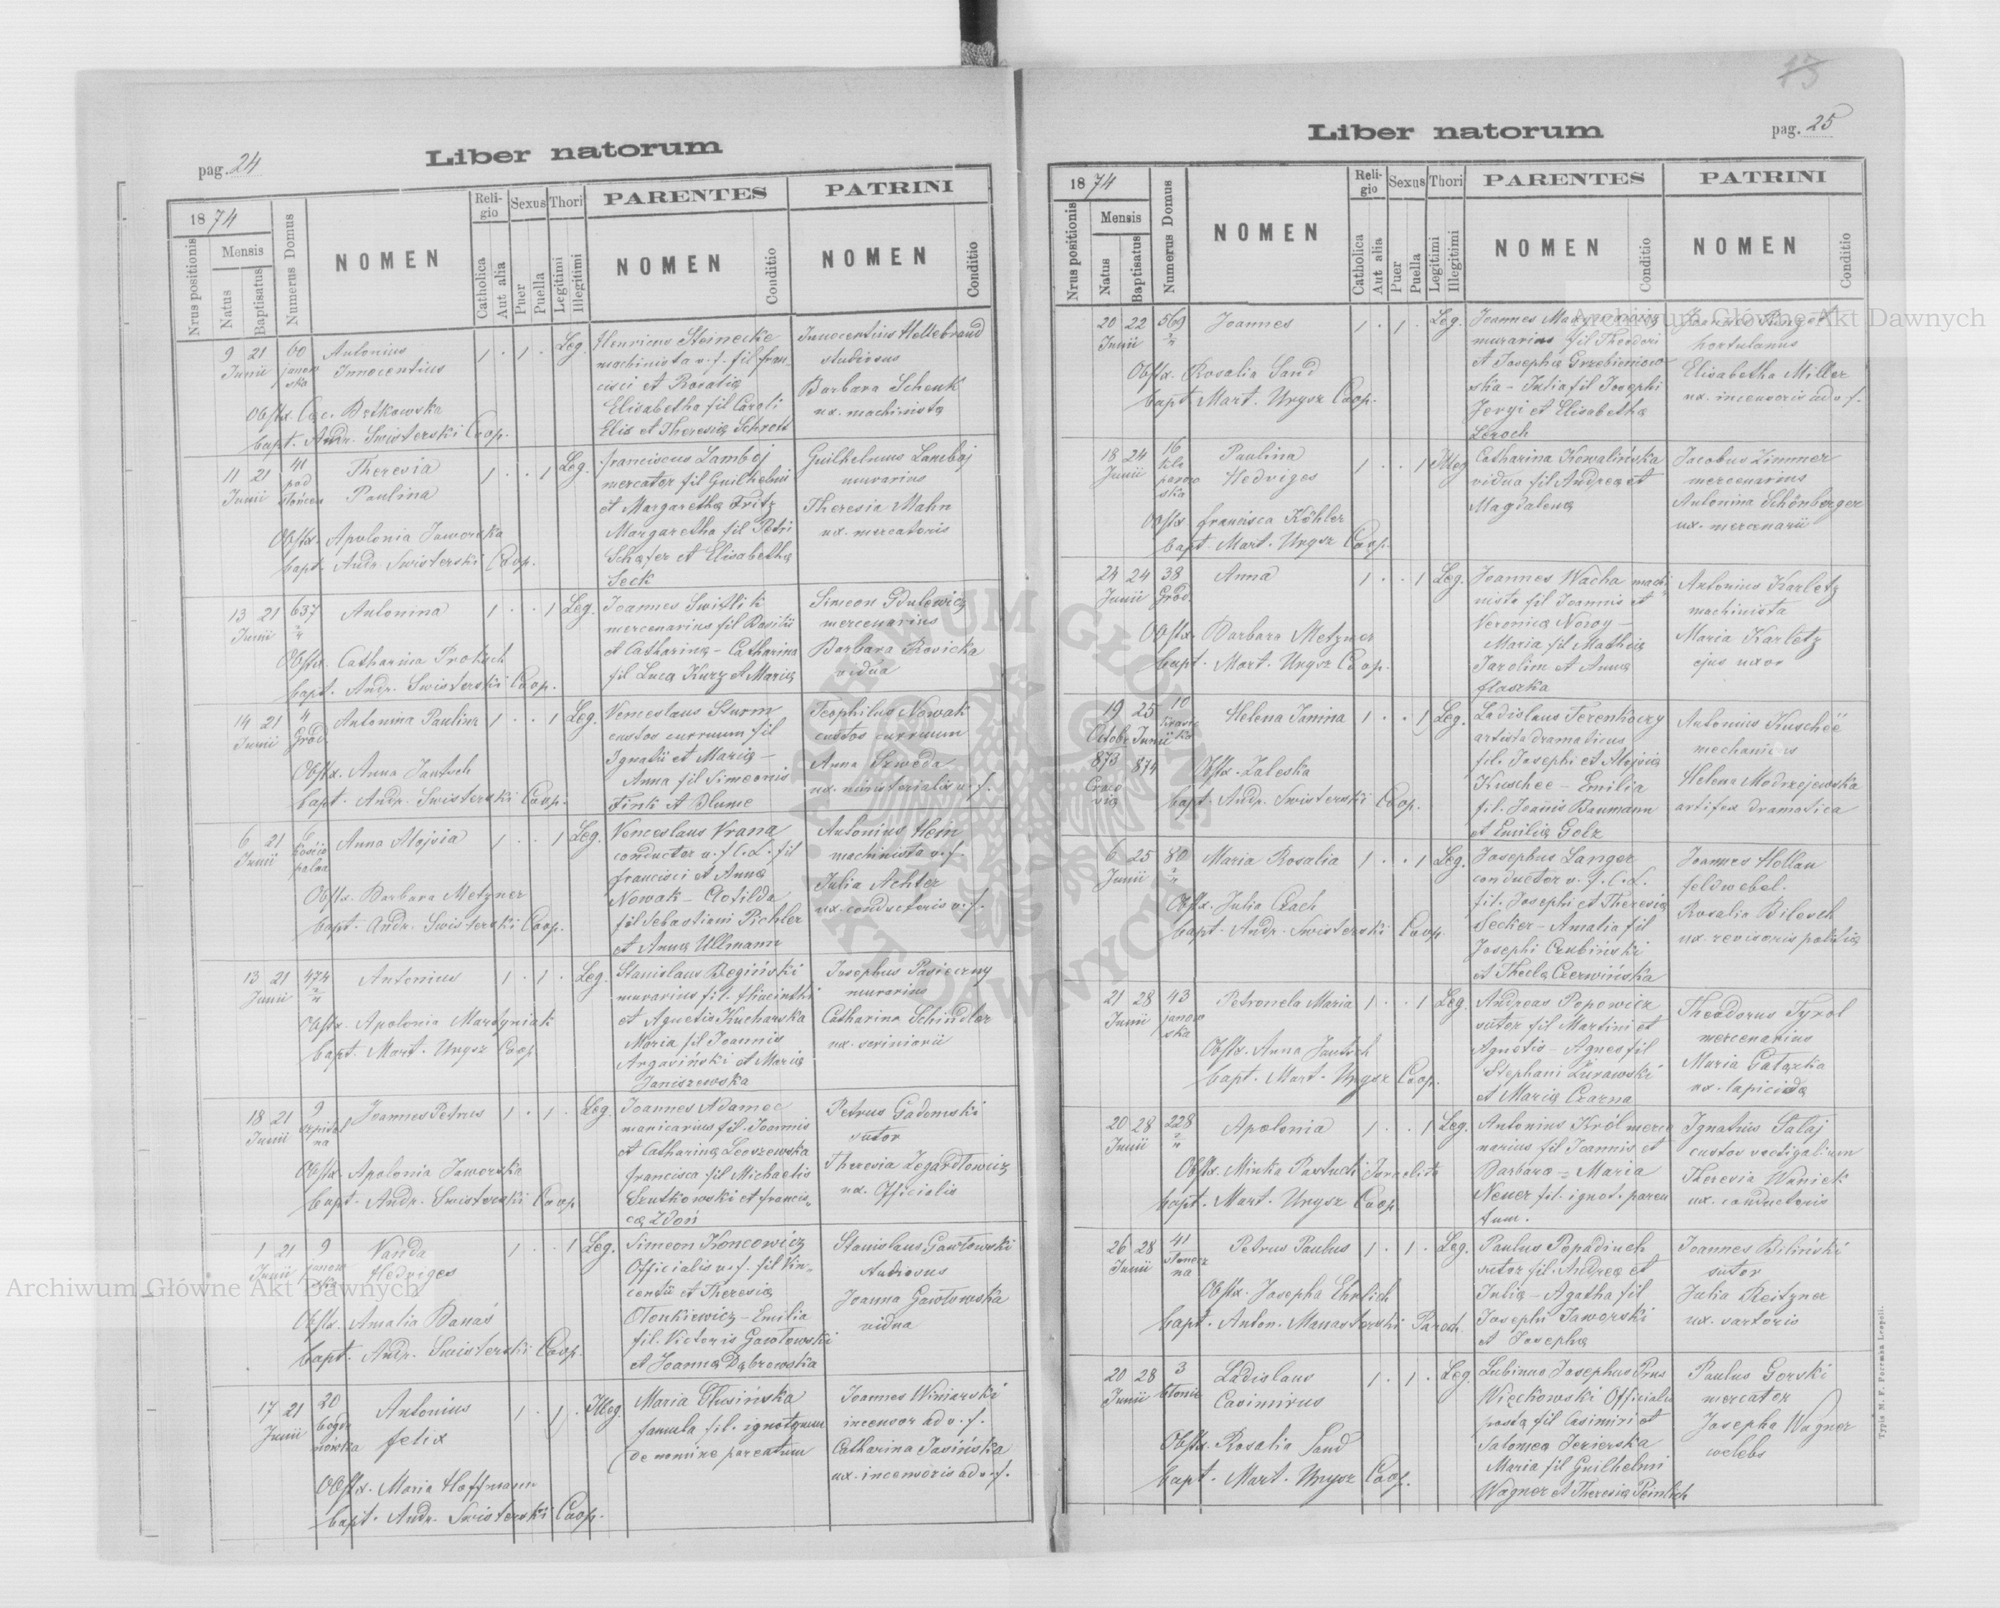 pag. 24
Liber natorum
1874
Nrus positionis
Mensis
Natus
Baptisatus
Numerus Domus
NOMEN
Religio
Catholica
Aut alia
Sexus
Puer
Puella
Thori
Legitimi
Illegitimi
PARENTES
NOMEN
Conditio
PATRINI
NOMEN
Conditio
9 21 60 Antonius 1 . 1 . Leg. Henricus Steinecke Innocentius Hellebrand
Junii Innocentius machinista v. f. fil. fran- studiosus
cisci et Rosalia Barbara Schenk
Elisabetha fil Caroli ux. machinista
Obstx. Brtkowska
bapt. Andr. Swisterski Coop. Elis et Theresia Schrott
11 21 41 Theresia 1 . . 1 Leg. franciscus Lamboj Guilhelmus Lamboj
Junii pod Paulina mercator fil Guilhelmi murarius
et Margaretha Fritz Theresia Mahn
Obstx. Apolonia Jaworska Margaretha fil Petri ux. mercatoris
bapt. Andr. Swisterski Coop. Schafer et Elisabetha
Seck
13 21 637 Antonina 1 . . 1 Leg. Joannes Swistlik Simeon
Junii mercenarius fil Basilii mercenarius
Obstx. Catharina Proksch et Catharina - Catharina Barbara Rovicka
bapt. Andr. Swisterski Coop. fil Luca Kurz et Maria vidua
14 21 4 Antonina Paulina 1 . . 1 Leg. Venceslaus Sturm Teophilus Nowak
Junii Grod. custos curruum fil custos curruum
Obstx. Anna Jantsch Ignatii et Maria - Anna Szweda
bapt. Andr. Swisterski Coop. Anna fil Simeonis ux. ministerialis v. f.
Fink et Blume
6 21 Anna Alojsia 1 . . 1 Leg. Venceslaus Vrana Antonius Hein
Junii conductor v. f. C. L. fil machinista v. f.
Obstx. Barbara Metzner francisci et Anna Julia Achter
bapt. Andr. Swisterski Coop. Nowak - Clotilda ux. conductoris v. f.
fil Sebastiani Pichler
et Anna Ullmann
13 21 474 Antonius 1 . 1 . Leg. Stanislaus Begiński Josephus Pasieczny
Junii murarius fil. Hiacinthi murarius
Obstx. Apolonia Martyniak et Agnetis Kucharska Catharina Schindler
bapt. Mart. Ungsz Coop. Maria fil Joannis ux. scriniarii
Argasiński et Maria
Janiszewska
18 21 9 Joannes Petrus 1 . 1 . Leg. Joannes Adamec Petrus Gadomski
Junii szpital na fil. Joannis sutor
Obstx. Apolonia Jaworska et Catharina Leoszewska Theresia Zegardłowicz
bapt. Andr. Swisterski Coop. francisca fil Michaelis ux. Officialis
Szutkowski et francis-
ca Zdoń
1 21 9 Vanda 1 . . 1 Leg. Simeon Koncowicz Stanislaus Gawłowski
Junii janow ska Hedviges Officialis v. f. fil Vin- studiosus
Obstx. Amalia Banaś centii et Theresia Joanna Gawłowska
bapt. Andr. Swisterski Coop. Otonkiewicz - Emilia vidua
fil. Victoris Gawłowski
et Joanna Dąbrowska
17 21 20 Antonius 1 . 1 . Illeg. Maria Głusińska Joannes Winiarski
Junii felix famula fil. ignotorum incensor ad v. f.
Obstx. Maria Hoffmann de nomine parentum Catharina Jasińska
bapt. Andr. Swisterski Coop. ux. incensoris ad v. f.
13
Liber natorum
pag. 25
1874
Nrus positionis
Mensis
Natus
Baptisatus
Numerus Domus
NOMEN
Religio
Catholica
Aut alia
Sexus
Puer
Puella
Thori
Legitimi
Illegitimi
PARENTES
NOMEN
Conditio
PATRINI
NOMEN
Conditio
20 22 569 Joannes 1 . 1 . Leg. Joannes
Junii murarius fil Theodori hortulanus
Obstx. Rosalia Sand et Josepha Grzebieniow- Elisabetha Miller
bapt. Mart. Ungsz Coop. ska - Julia fil Josephi ux. incensoris ad v. f.
Jergi et Elisabetha
Leroch
18 24 16 Paulina 1 . . 1 Illeg Catharina Kowalińska Jacobus Zimmer
Junii Hedviges vidua fil Andrea et mercenarius
Obstx. francisca Köhler Magdalena Antonina Schönberger
bapt. Mart. Ungsz Coop. ux. mercenarii
24 24 38 Anna 1 . . 1 Leg. Joannes Wacha machi- Antonius Karletz
Junii Grod. nista fil Joannis et machinista
Obstx. Barbara Metzner Veronica Novoy - Maria Karletz
bapt. Mart. Ungsz Coop. Maria fil Mathia ejus uxor
Jarolim et Anna
flaszka
19 25 10 Helena Janina 1 . . 1 Leg. Ladislaus Terenkoczy Antonius Kuscheé
Octobr Junii artista dramaticus mechanicus
873 874 Obstx. Zaleska fil. Josephi et Alojsia Helena Modrzejewska
Craco via bapt. Andr. Swisterski Coop. Kuschee - Emilia artifex dramatica
fil. Joannis Baumann
et Emilia Golz
6 25 80 Maria Rosalia 1 . . 1 Leg. Josephus Langer Joannes Hollan
Junii conductor v. f. C. L. feldwebel.
Obstx. Julia Czach fil. Josephi et Theresia Rosalia Bilesch
bapt. Andr. Swisterski Coop. Secker - Amalia fil ux. revisoris politia
Josephi Czubiński
et Thecla Czerwińska
21 28 43 Petronela Maria 1 . . 1 Leg. Andreas Popowicz Theodorus Tyrol
Junii janow ska sutor fil Martini et mercenarius
Obstx. Anna Jantsch Agnetis - Agnes fil Maria Gałązka
bapt. Mart. Ungsz Coop. Stephani Żurawski ux. lapicida
et Maria Czarna
20 28 228 Apolonia 1 . . 1 Leg. Antonius Król merce Ignatius Sałaj
Junii narius fil Joannis et custos vectigalium
Obstx. Minka Pastuch Israelita Barbara - Maria Theresia Waniek
bapt. Mart. Ungsz Coop. Neuer fil. ignot. paren ux. conductoris
tum.
26 28 41 Petrus Paulus 1 . 1 . Leg. Paulus Popadiuch Joannes Biliński
Junii słonecz na sutor fil. Andrea et sutor
Obstx. Josepha Ehrlich Julia - Agatha fil Julia Reitzner
bapt. Anton. Manasterski Paroch. Josephi Jaworski ux. sartoris
et Josepha
20 28 3 Ladislaus 1 . 1 . Leg. Lubinus Josephus Prus Paulus Gorski
Junii błonie Casimirus Więckowski Officialis mercator
Obstx. Rosalia Sand posta fil Casimiri et Josepha Wagner
bapt. Mart. Ungsz Coop. Salomea Jezierska welebs
Maria fil Guilhelmi
Wagner et Theresia Peinlich
Typis M. F. Poremba Leopoli.
Archiwum Główne Akt Dawnych
Archiwum Główne Akt Dawnych
ARCHIWUM GŁÓWNE AKT DAWNYCH